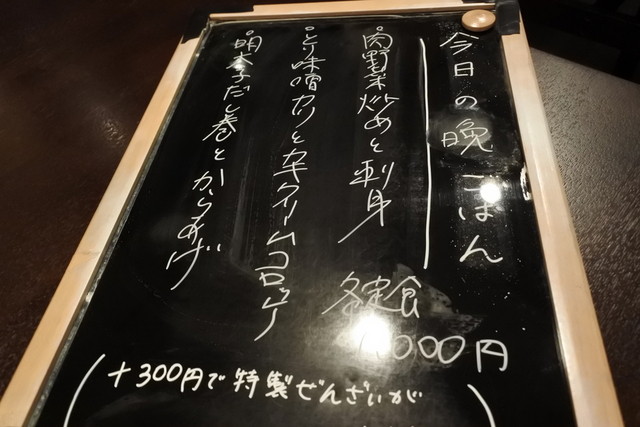 今日の晩ごはん
・肉野菜炒めと刺身
・とり味噌カツとカニクリームコロッケ
・明太子だし巻とからあげ
各定食
1,000円
(+300円で特製ぜんざいが)